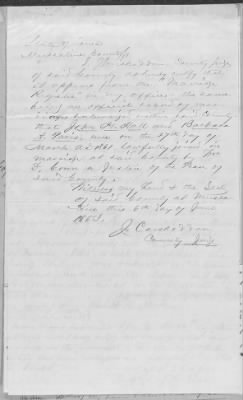 State of Iowa
Muscatine County
I, J Carskaddan County Judge
of said County do hereby certify that
it appears from the "Marriage
Register" in my office, the same
being an official record of marriages
within said County
that John H. Hall and Barbara
were on the 17th day of
March A.D. 1861 lawfully joined in
marriage at said County by
D. a Justice of the Peace of
said County.
Witness my hand & the Seal
of said County at Muscatine
this 6th day of June
1863.
J. Carskaddan
County Judge